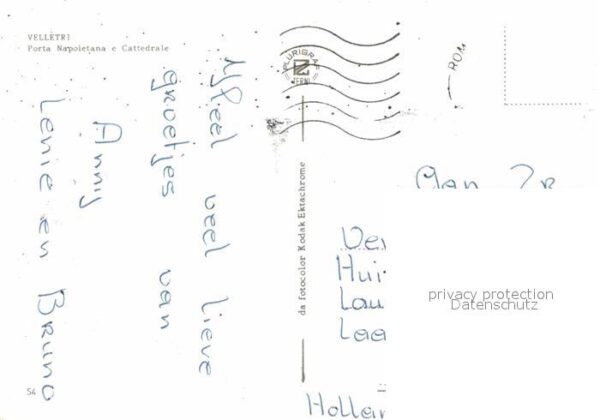 VELLETRI
Porta Napoletana e Cattedrale
Heel veel lieve
groetjes van
Annij
Lenie en Bruno
54
PLURIGRAF
TERNI
da fotocolor Kodak Ektachrome
ROM
Aan
Hui
Lau
Laa
privacy protection
Datenschutz